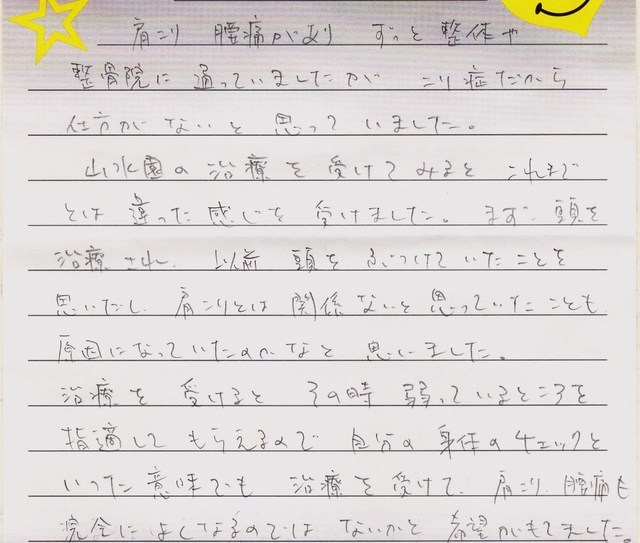 肩こり 腰痛があり ずっと整体や
整骨院に通っていましたが こり症だから
仕方がないと思っていました。
山水園の治療を受けてみると これまで
とは違った感じを受けました。まず 頭を
治療され、以前 頭をぶつけていたことを
思いだし、肩こりとは関係ないと思っていたことも
原因になっていたのかなと 思いました。
治療を受けると その時 弱っているところを
指適してもらえるので 自分の身体のチェックと
いった意味でも 治療を受けて、肩こり、腰痛も
完全によくなるのでは ないかと 希望がもてました。